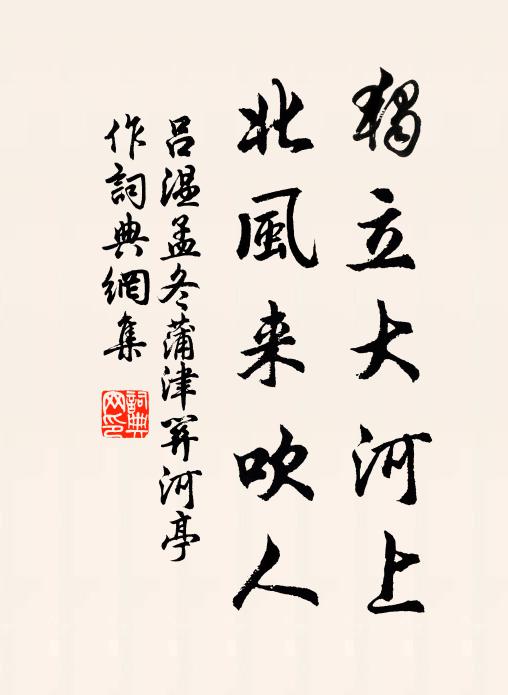 獨立大河上
北風来吹人
吕温孟冬蒲津関河亭
作詞典網集
詞典
网印